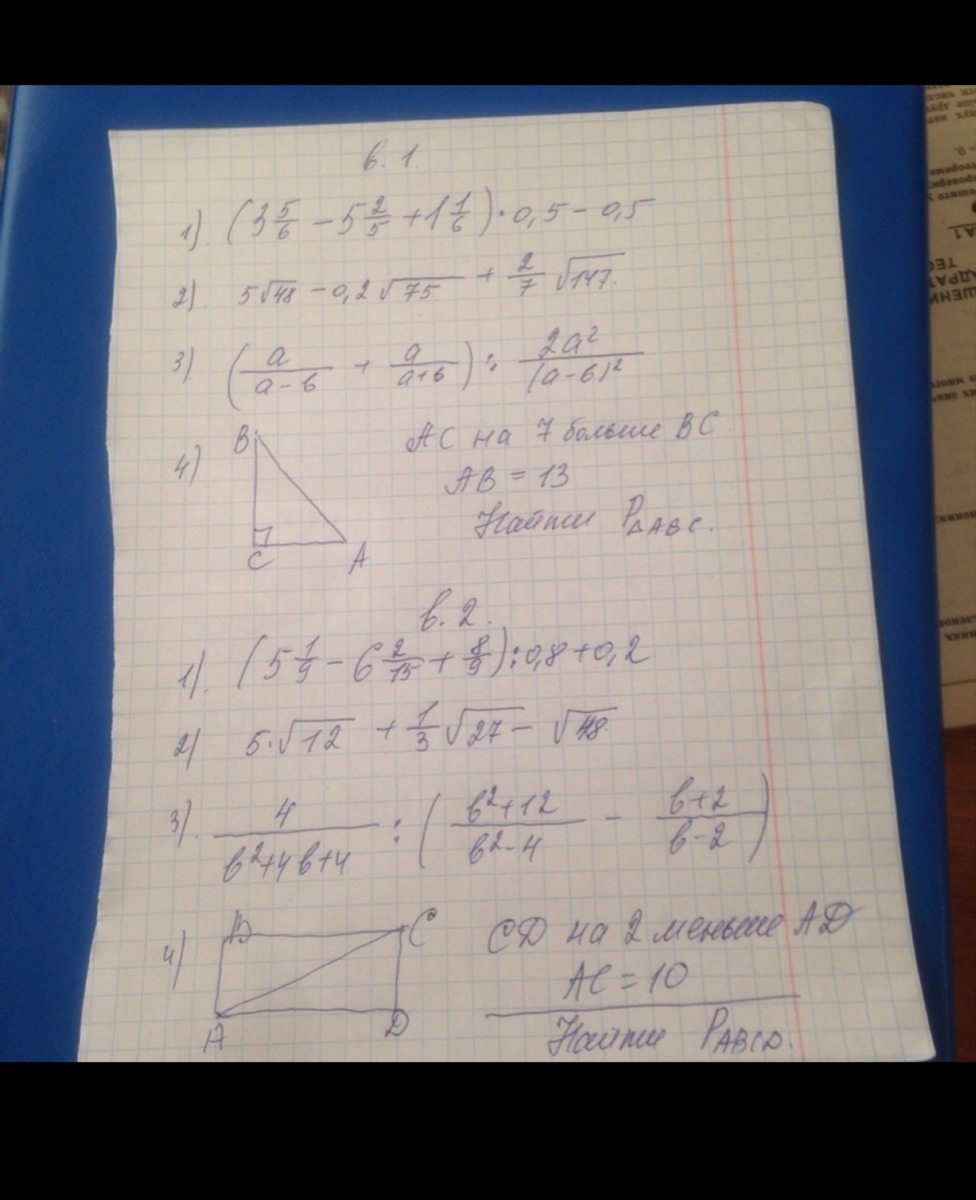 в. 1.
1). (3 5/6 − 5 2/5 + 1 1/6) · 0,5 − 0,5
2). 5√48 − 0,2√75 + 2/7 √147.
3). (a/(a−в) + a/(a+в)) : 2a²/(a−в)²
4) B C A
AC на 7 больше BC
AB = 13
Найти P△ABC.
в. 2.
1). (5 1/9 − 6 2/15 + 8/9) : 0,8 + 0,2
2) 5·√12 + 1/3 √27 − √48.
3). 4/(в²+4в+4) : ((в²+12)/(в²−4) − (в+2)/(в−2))
4) B C A D
CD на 2 меньше AD
AC = 10
Найти PABCD.